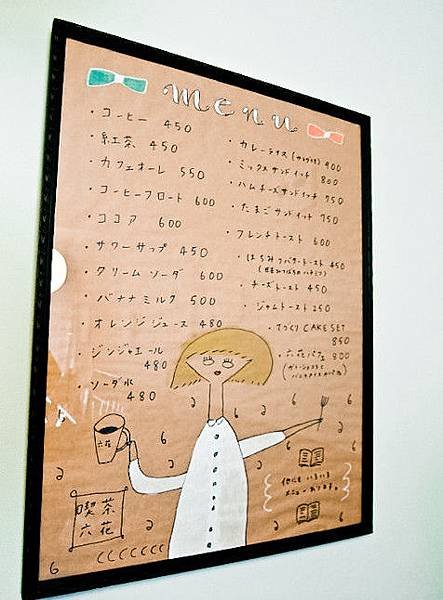 menu
・コーヒー 450
・紅茶 450
・カフェオーレ 550
・コーヒーフロート 600
・ココア 600
・サワーサップ 450
・クリームソーダ 600
・バナナミルク 500
・オレンジジュース 480
・ジンジャエール
480
・ソーダ水
480
・カレーライス (サラダ付) 900
・ミックスサンドイッチ 800
・ハムチーズサンドイッチ 750
・たまごサンドイッチ 750
・フレンチトースト 600
・はちみつバタートースト 450
・チーズトースト 450
・ジャムトースト 350
・手づくり CAKE SET
850
・六花パフェ 800
六花
喫茶
六花
他にもいろいろ
メニューあります。